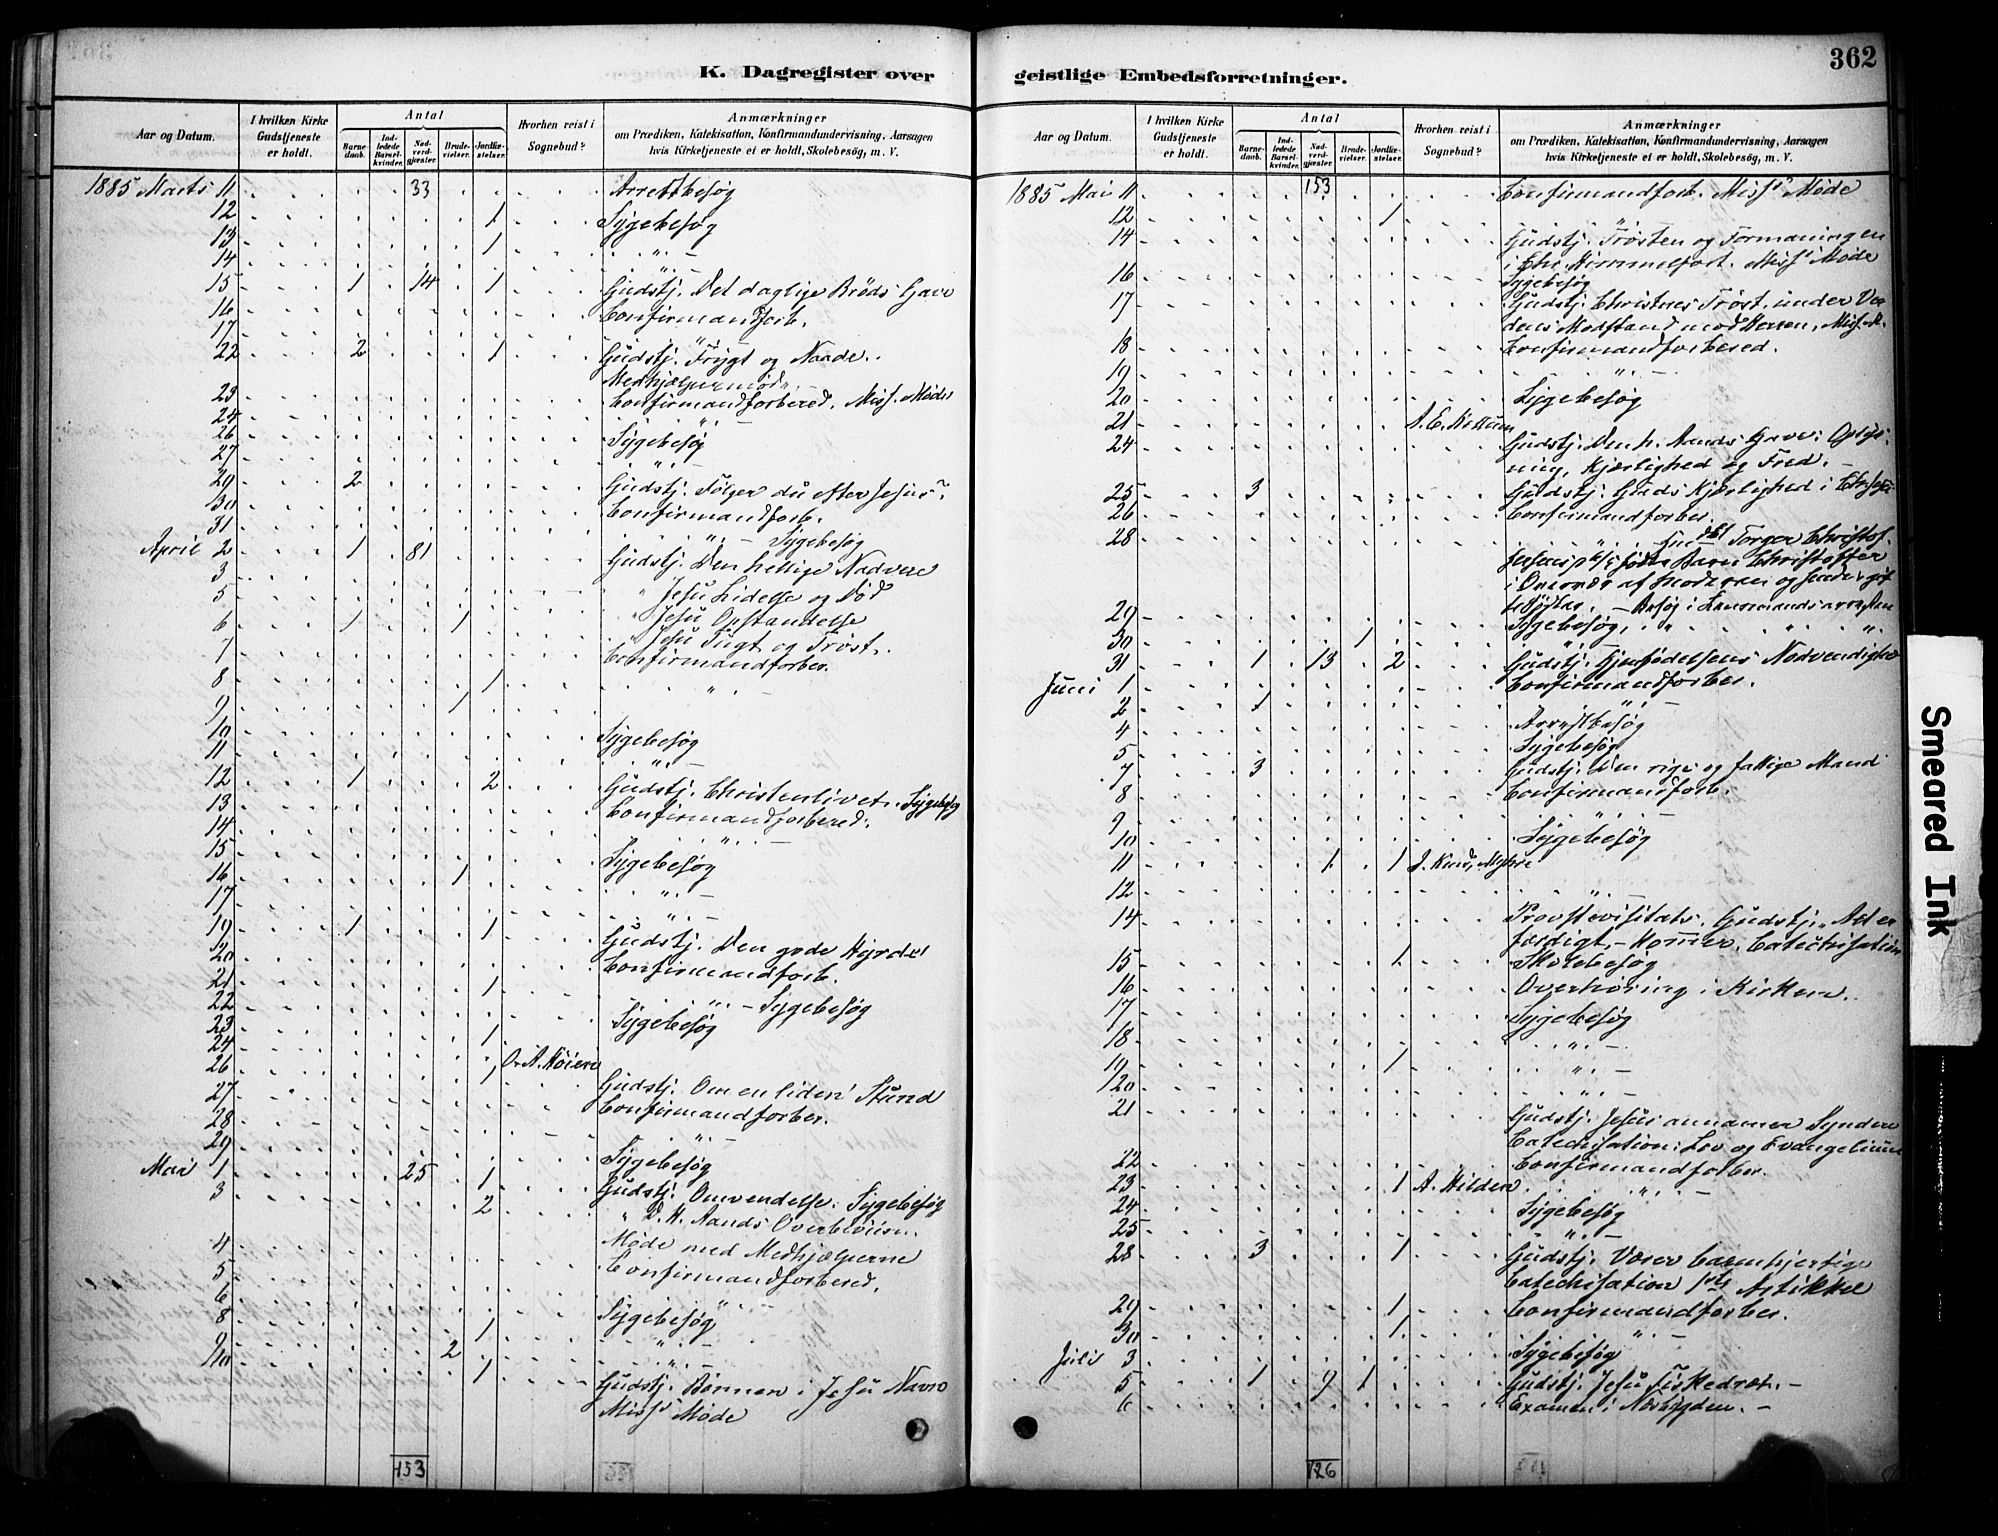 362
K. Dagregister over
geistlige Embedsforretninger.
Aar og Datum.
I hvilken Kirke Gudstjeneste er holdt.
Antal
Barne-daab.
Ind-ledede Barsel-kvinder.
Nad-verd-gjester.
Brude-vielser.
Jordfæ-stelser.
Hvorhen reist i Sognebud?
Anmærkninger
om Prædiken, Katekisation, Konfirmandundervisning, Aarsagen
hvis Kirketjeneste ei er holdt, Skolebesøg, m. V.
1885 Marts 11 33 Arrestbesøg
12 1 Sygebesøg
13 1 " –
14 "
15 1 14 1 Gudstj. Det daglige Brøds Gave
16 Confirmandforb.
17 "
22 2 1 Gudstj. Frygt og Naade.
Medhjælpermøde
23 Confirmandforbered. Miss. Møde
24 "
26 Sygebesøg
27 "
29 2 Gudstj. Følger du efter Jesus?
30 Confirmandforb.
31 " – Sygebesøg
April 2 1 81 Gudstj. Den hellige Nadvere
3 " Jesu Lidelse og Død
5 " Jesu Opstandelse
6 1 1 " Jesu Tugt og Trøst.
7 Confirmandforber.
8 1 " –
9 1
10 Sygebesøg
11 "
12 1 2 Gudstj. Christenlivet. Sygebesøg
13 Confirmandforbered.
14 " –
15 Sygebesøg
16 1 " –
17 " –
19 1 1 Gudstj. Den gode Hyrde
20 Confirmandforb.
21 1
22 " – Sygebesøg
23 Sygebesøg
24 1
26 1 A. Høiern
Gudstj. Om en liden Stund
27 Confirmandforber.
28 " –
29 Sygebesøg
Mai 1 25 1 Gudstj. Omvendelse. Sygebesøg
3 2 " D. H. Aands Overbeviisn.
4 Møde med Medhjælperne
5 Confirmandforbered.
6 "
8 1 Sygebesøg
9 2 " –
10 1 Gudstj. Bønnen i Jesu Navn
Miss. Møde
153
Aar og Datum.
I hvilken Kirke Gudstjeneste er holdt.
Antal
Barne-daab.
Ind-ledede Barsel-kvinder.
Nad-verd-gjester.
Brude-vielser.
Jordfæ-stelser.
Hvorhen reist i Sognebud?
Anmærkninger
om Prædiken, Katekisation, Konfirmandundervisning, Aarsagen
hvis Kirketjeneste ei er holdt, Skolebesøg, m. V.
1885 Mai 11 153 Confirmandforb. Miss. Møde
12 1 "
14 Gudstj. Trøsten og Formaningen
i Chr. Himmelfart. Miss. Møde
16 Sygebesøg
17 Gudstj. Christnes Trøst under Ver
dens Modstand mod Herren, Miss. M.
18 Confirmandforbered.
19 " –
20 Sygebesøg
21
24 Gudstj. Den h. Aands Gave: Oplys-
ning, Kjærlighed og Fred. –
25 3 Gudstj. Guds Kjærlighed i
26 Confirmandforber.
28 " Torger Christof-
født Barn Christoffer
i af Moderen og
29 – Besøg i
30 1 Sygebesøg, "
31 1 13 2 Gudstj. Gjenfødelsens Nødvendighed
Juni 1 Confirmandforber.
2 1 " –
4 Arrestbesøg
5 Sygebesøg
7 3 Gudstj. Den rige og fattige Mand
8 Confirmandforb.
9 "
10 Sygebesøg
11 1 1 Myhre
12 " –
14 Provstevisitats. Gudstj. "Alt er
færdigt, – Kommer. Catechisation
15 1 Skolebesøg
16 Overhøring i Kirken.
17 Sygebesøg
18 " –
19 1 " –
20 " –
21 Gudstj. Jesus annamer Syndere
Catechisation: Lov og Evangelium
22 Confirmandforber.
23 1 A. Hilden " –
24 Sygebesøg
25 " –
28 3 1 Gudstj. Værer barmhjertige
Catechisation 1ste Artikkel
29 1 Confirmandforber.
30 1 " –
Juli 3 Sygebesøg
5 1 9 1 Gudstj. Jesu Fiskedræt. –
6 Examen i Nordbygden. –
126
Smeared Ink